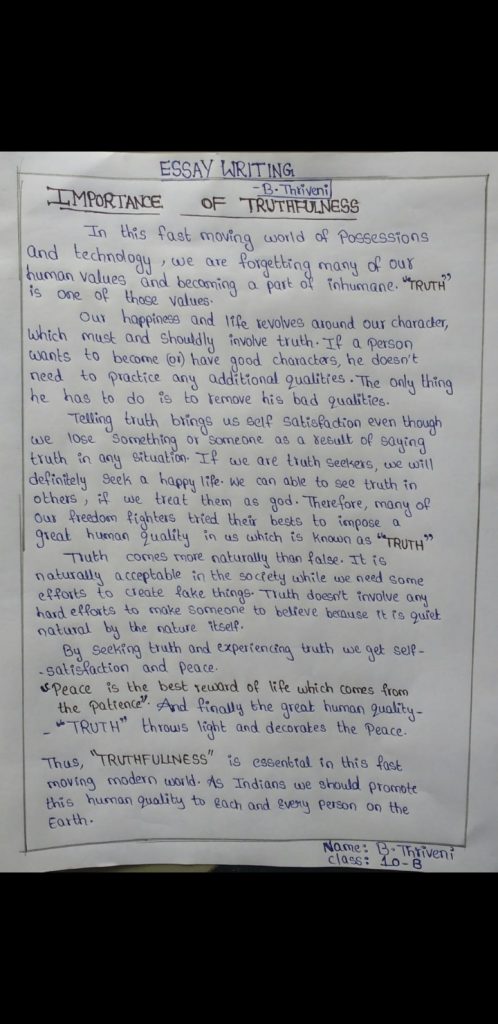 ESSAY WRITING
-B. Thriveni
IMPORTANCE OF TRUTHFULNESS
In this fast moving world of Possessions
and technology, we are forgetting many of our
human values and becoming a part of inhumane. "TRUTH"
is one of those values.
Our happiness and life revolves around our character,
which must and shouldly involve truth. If a person
wants to become (or) have good characters, he doesn't
need to practice any additional qualities. The only thing
he has to do is to remove his bad qualities.
Telling truth brings us self satisfaction even though
we lose something or someone as a result of saying
truth in any situation. If we are truth seekers, we will
definitely seek a happy life. We can able to see truth in
others, if we treat them as god. Therefore, many of
our freedom fighters tried their bests to impose a
great human quality in us which is known as "TRUTH"
Truth comes more naturally than false. It is
naturally acceptable in the society while we need some
efforts to create fake things. Truth doesn't involve any
hard efforts to make someone to believe because it is quiet
natural by the nature itself.
By seeking truth and experiencing truth we get self-
-satisfaction and peace.
"Peace is the best reward of life which comes from
the patience". And finally the great human quality-
- "TRUTH" throws light and decorates the Peace.
Thus, "TRUTHFULLNESS" is essential in this fast
moving modern world. As Indians we should promote
this human quality to each and every person on the
Earth.
Name: B. Thriveni
class: 10-B